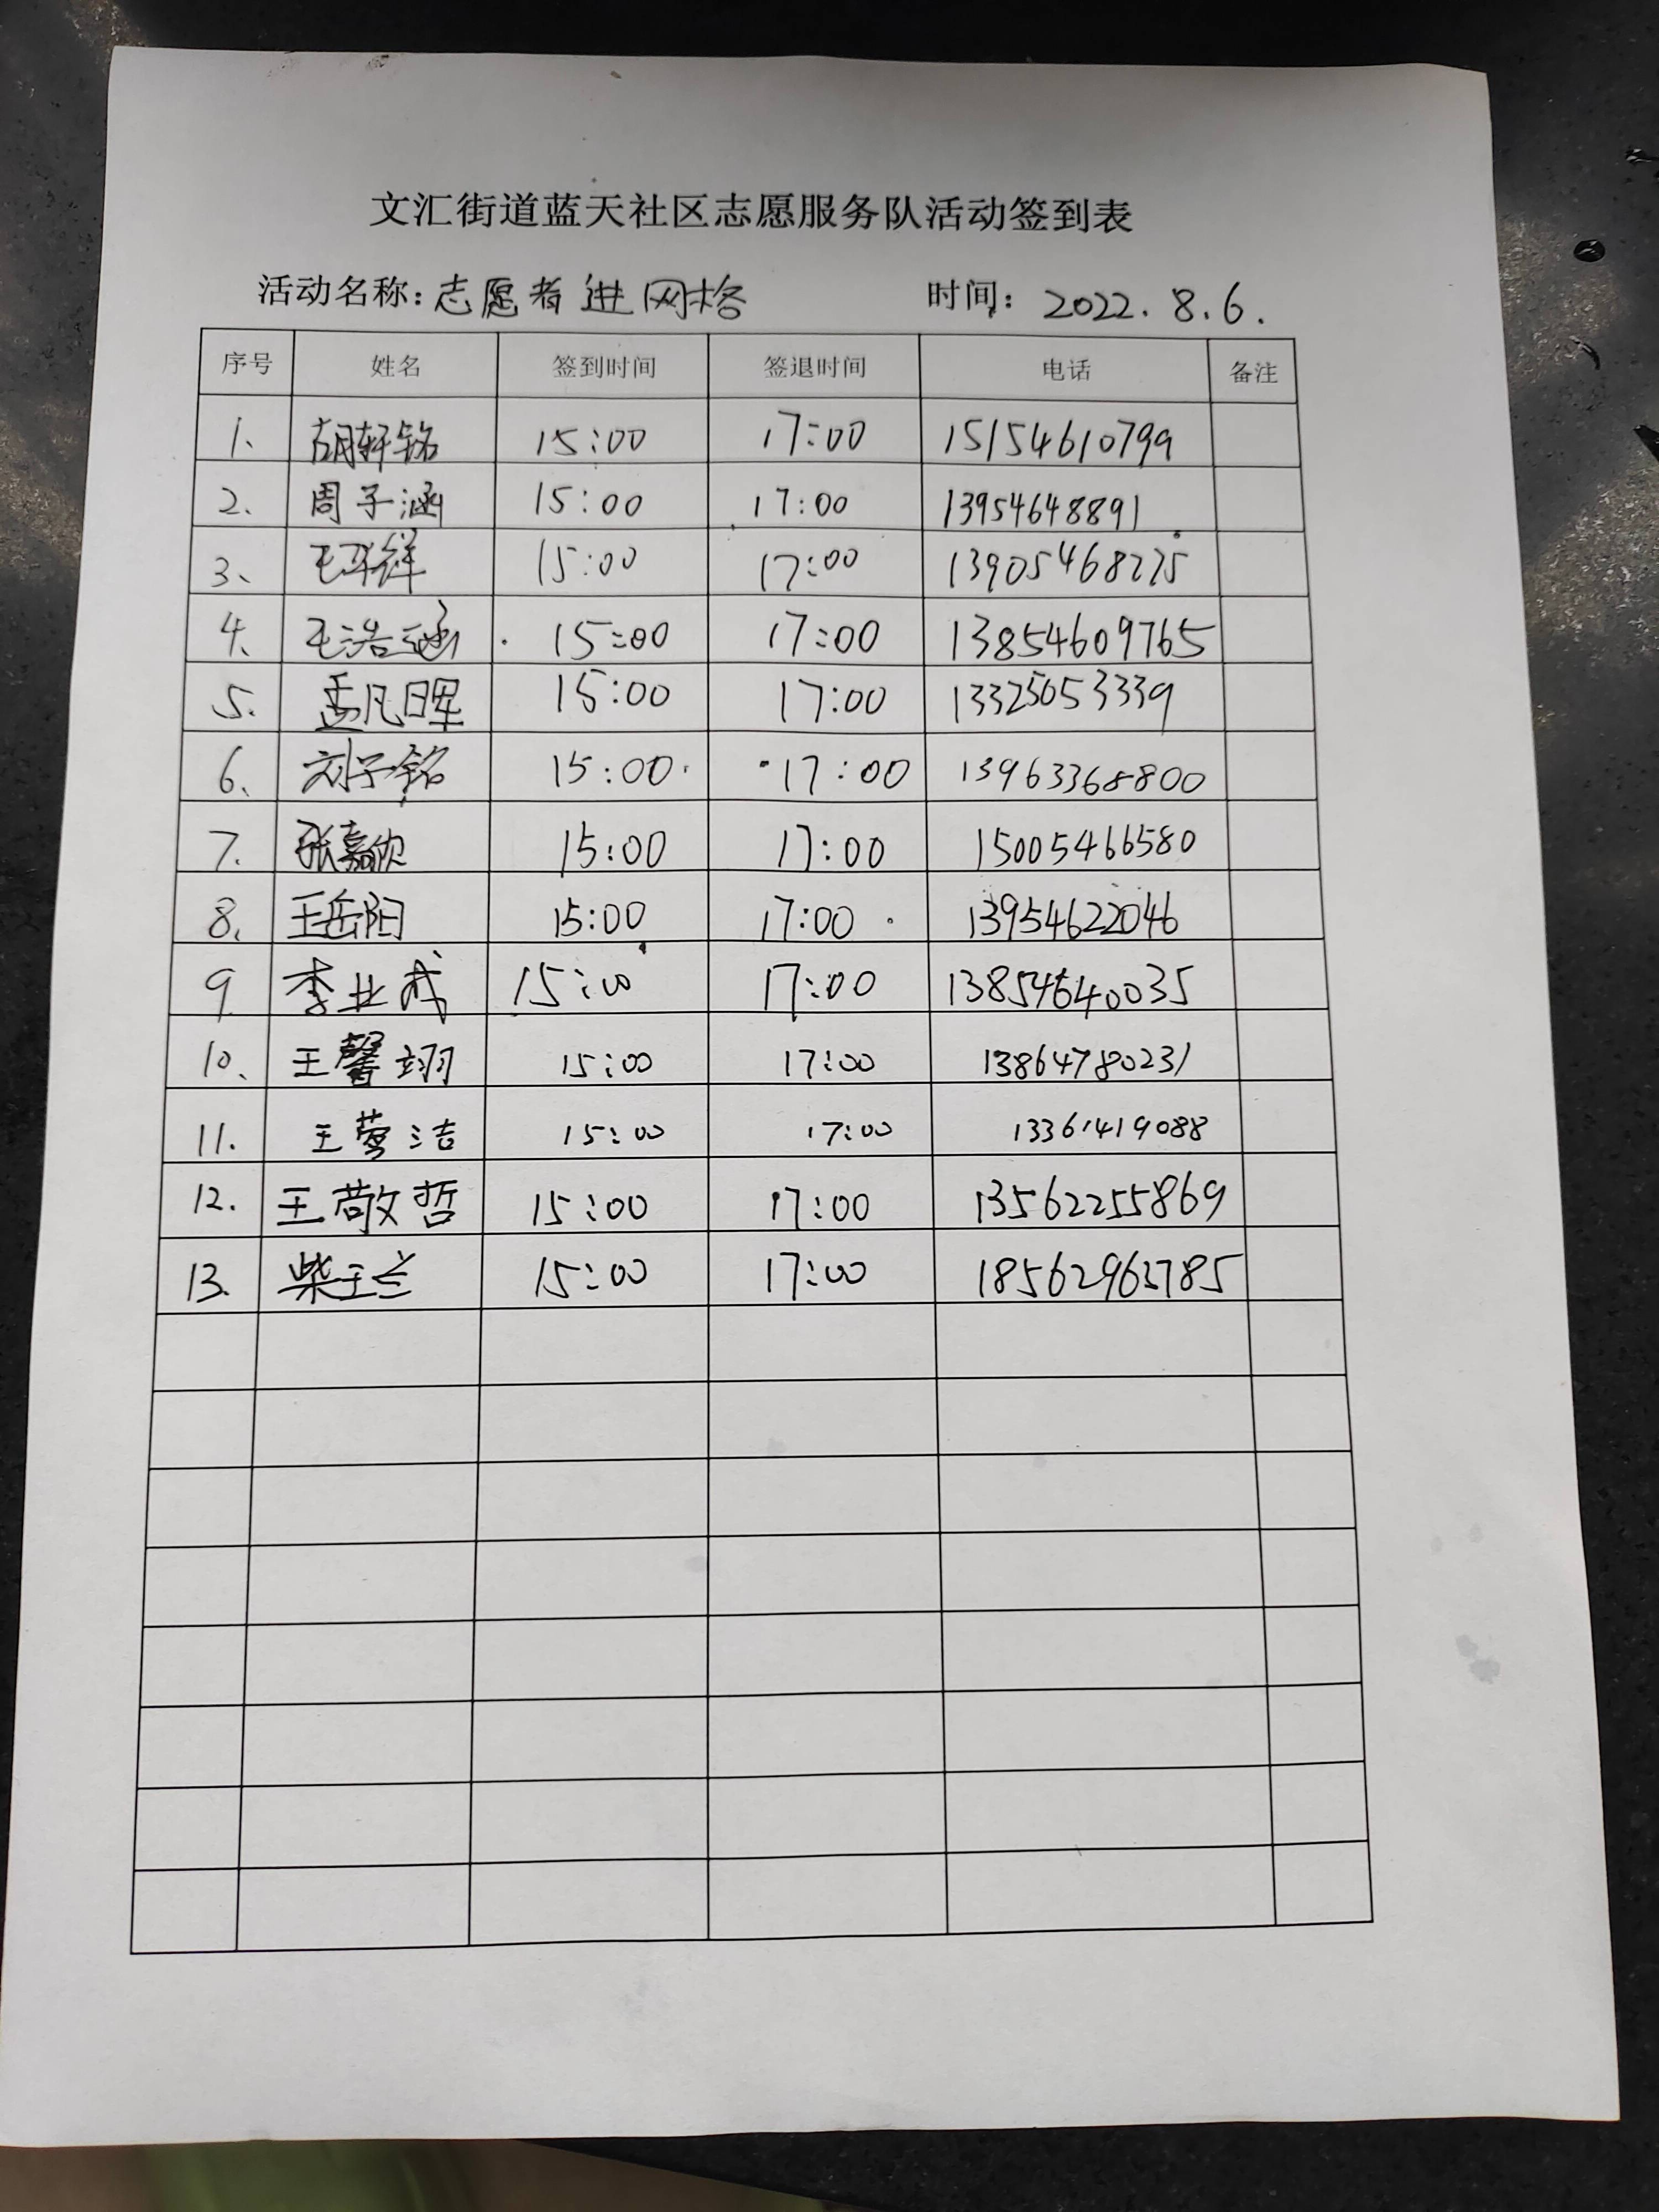 文汇街道蓝天社区志愿服务队活动签到表
活动名称：志愿者进网格 时间：2022.8.6.
序号 姓名 签到时间 签退时间 电话 备注
1、 胡轩铭 15:00 17:00 15154610799
2、 周子涵 15:00 17:00 13954648891
3、 15:00 17:00 13905468275
4、 王浩涵 15:00 17:00 13854609765
5. 孟凡晖 15:00 17:00 13325053339
6、 刘子铭 15:00 17:00 13963368800
7. 张嘉欣 15:00 17:00 15005466580
8、 王岳阳 15:00 17:00 13954622046
9. 李业成 15:00 17:00 13854640035
10、 王馨翊 15:00 17:00 13864780231
11. 王 洁 15:00 17:00 13361419088
12. 王敬哲 15:00 17:00 13562255869
13. 柴玉兰 15:00 17:00 18562963785